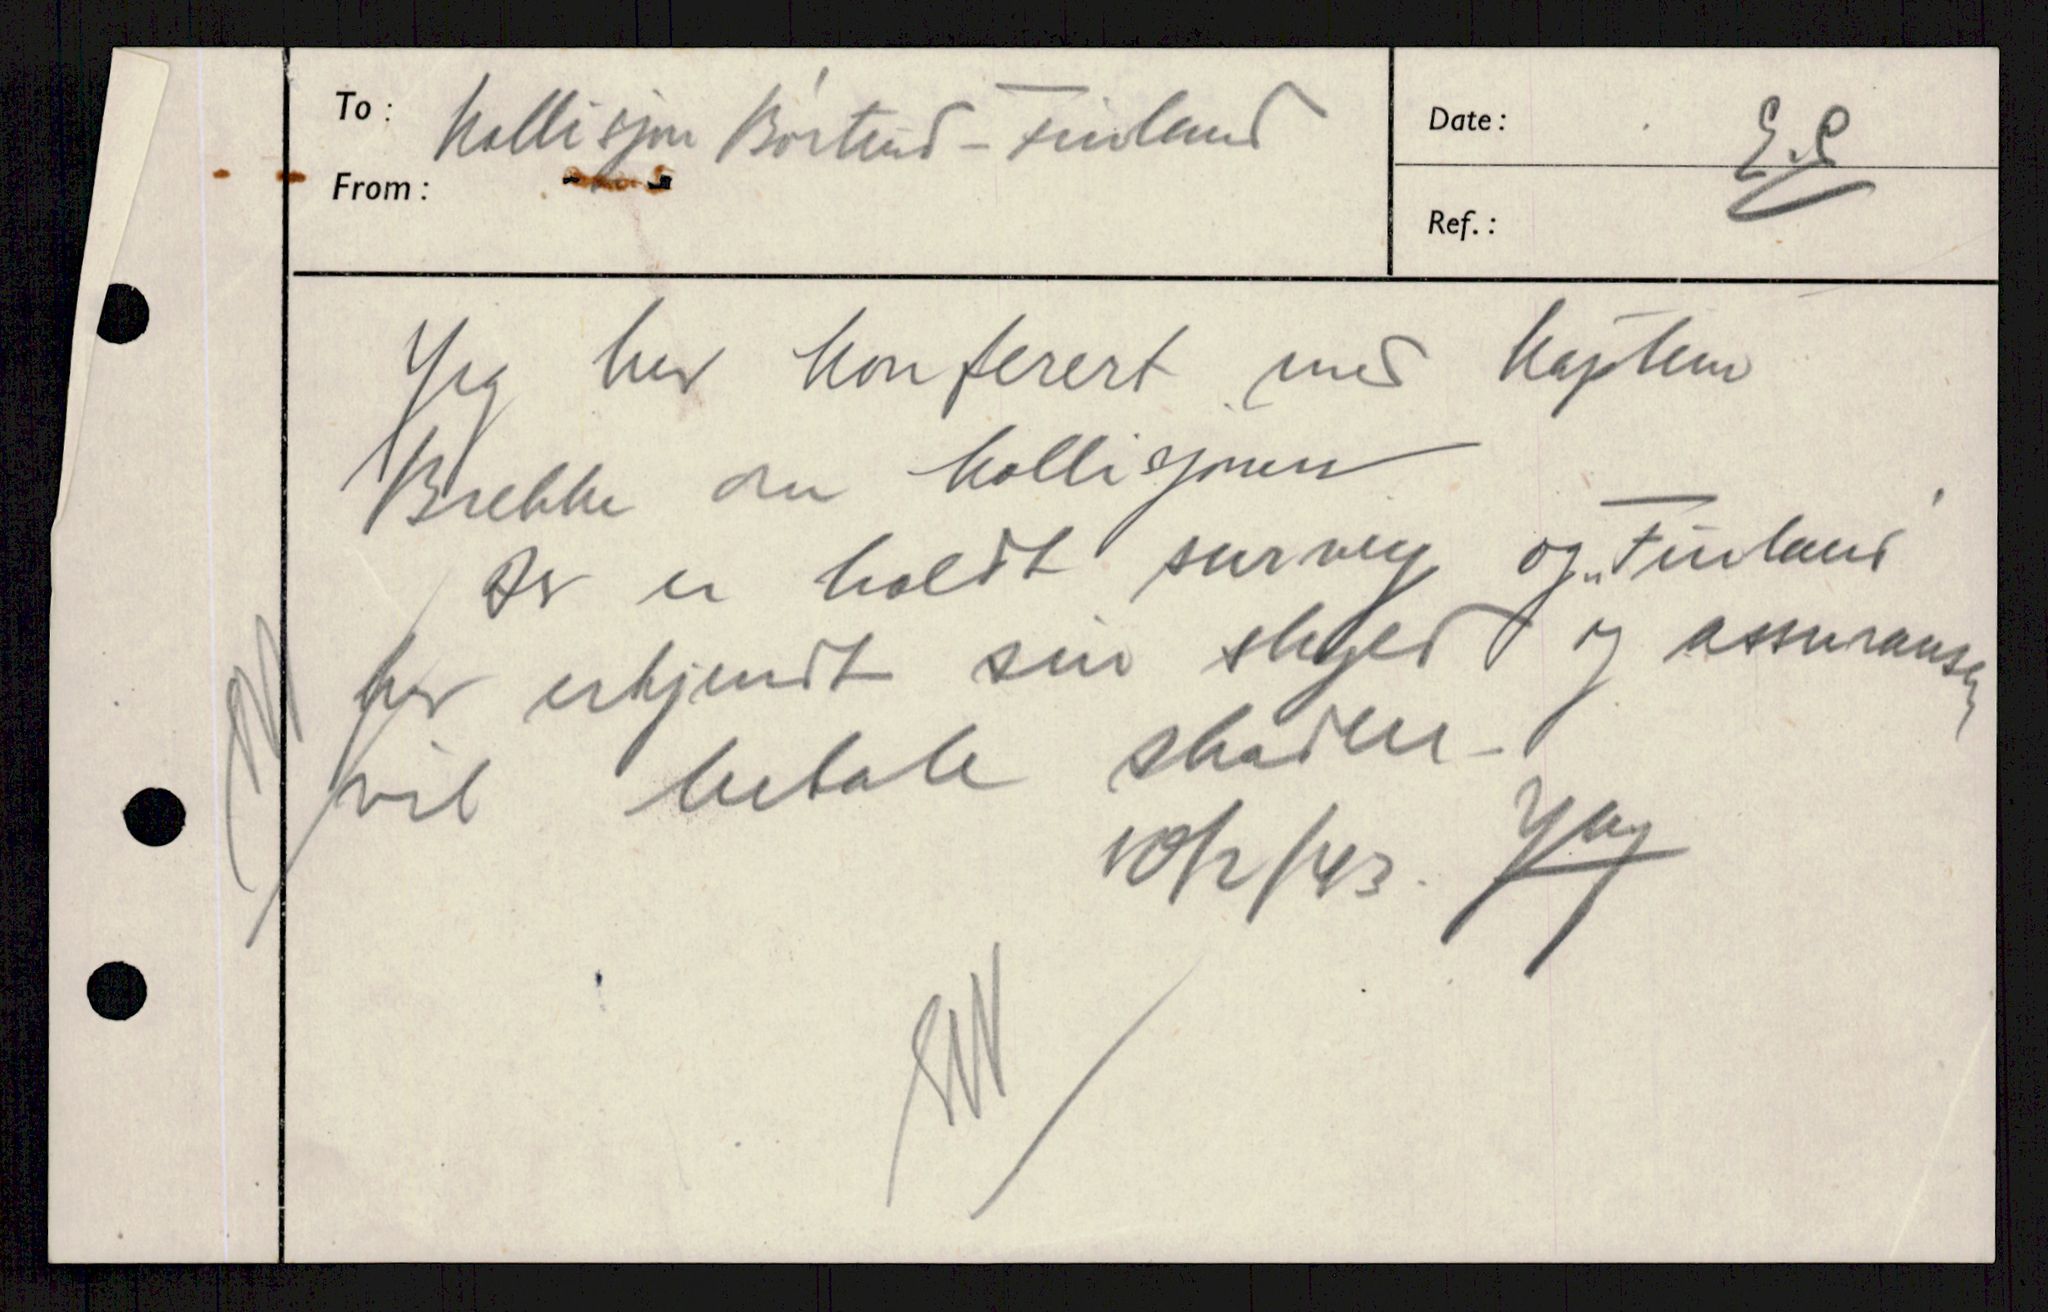 To: Kollisjon Børtind - Finland
From:
Date:
E.S
Ref.:
Jeg har konferert med kaptein
Brekke om kollisjonen
Der er holdt survey og „Finland"
har erkjendt sin skyld og assuransen
vil betale skaden-
10/2/43.